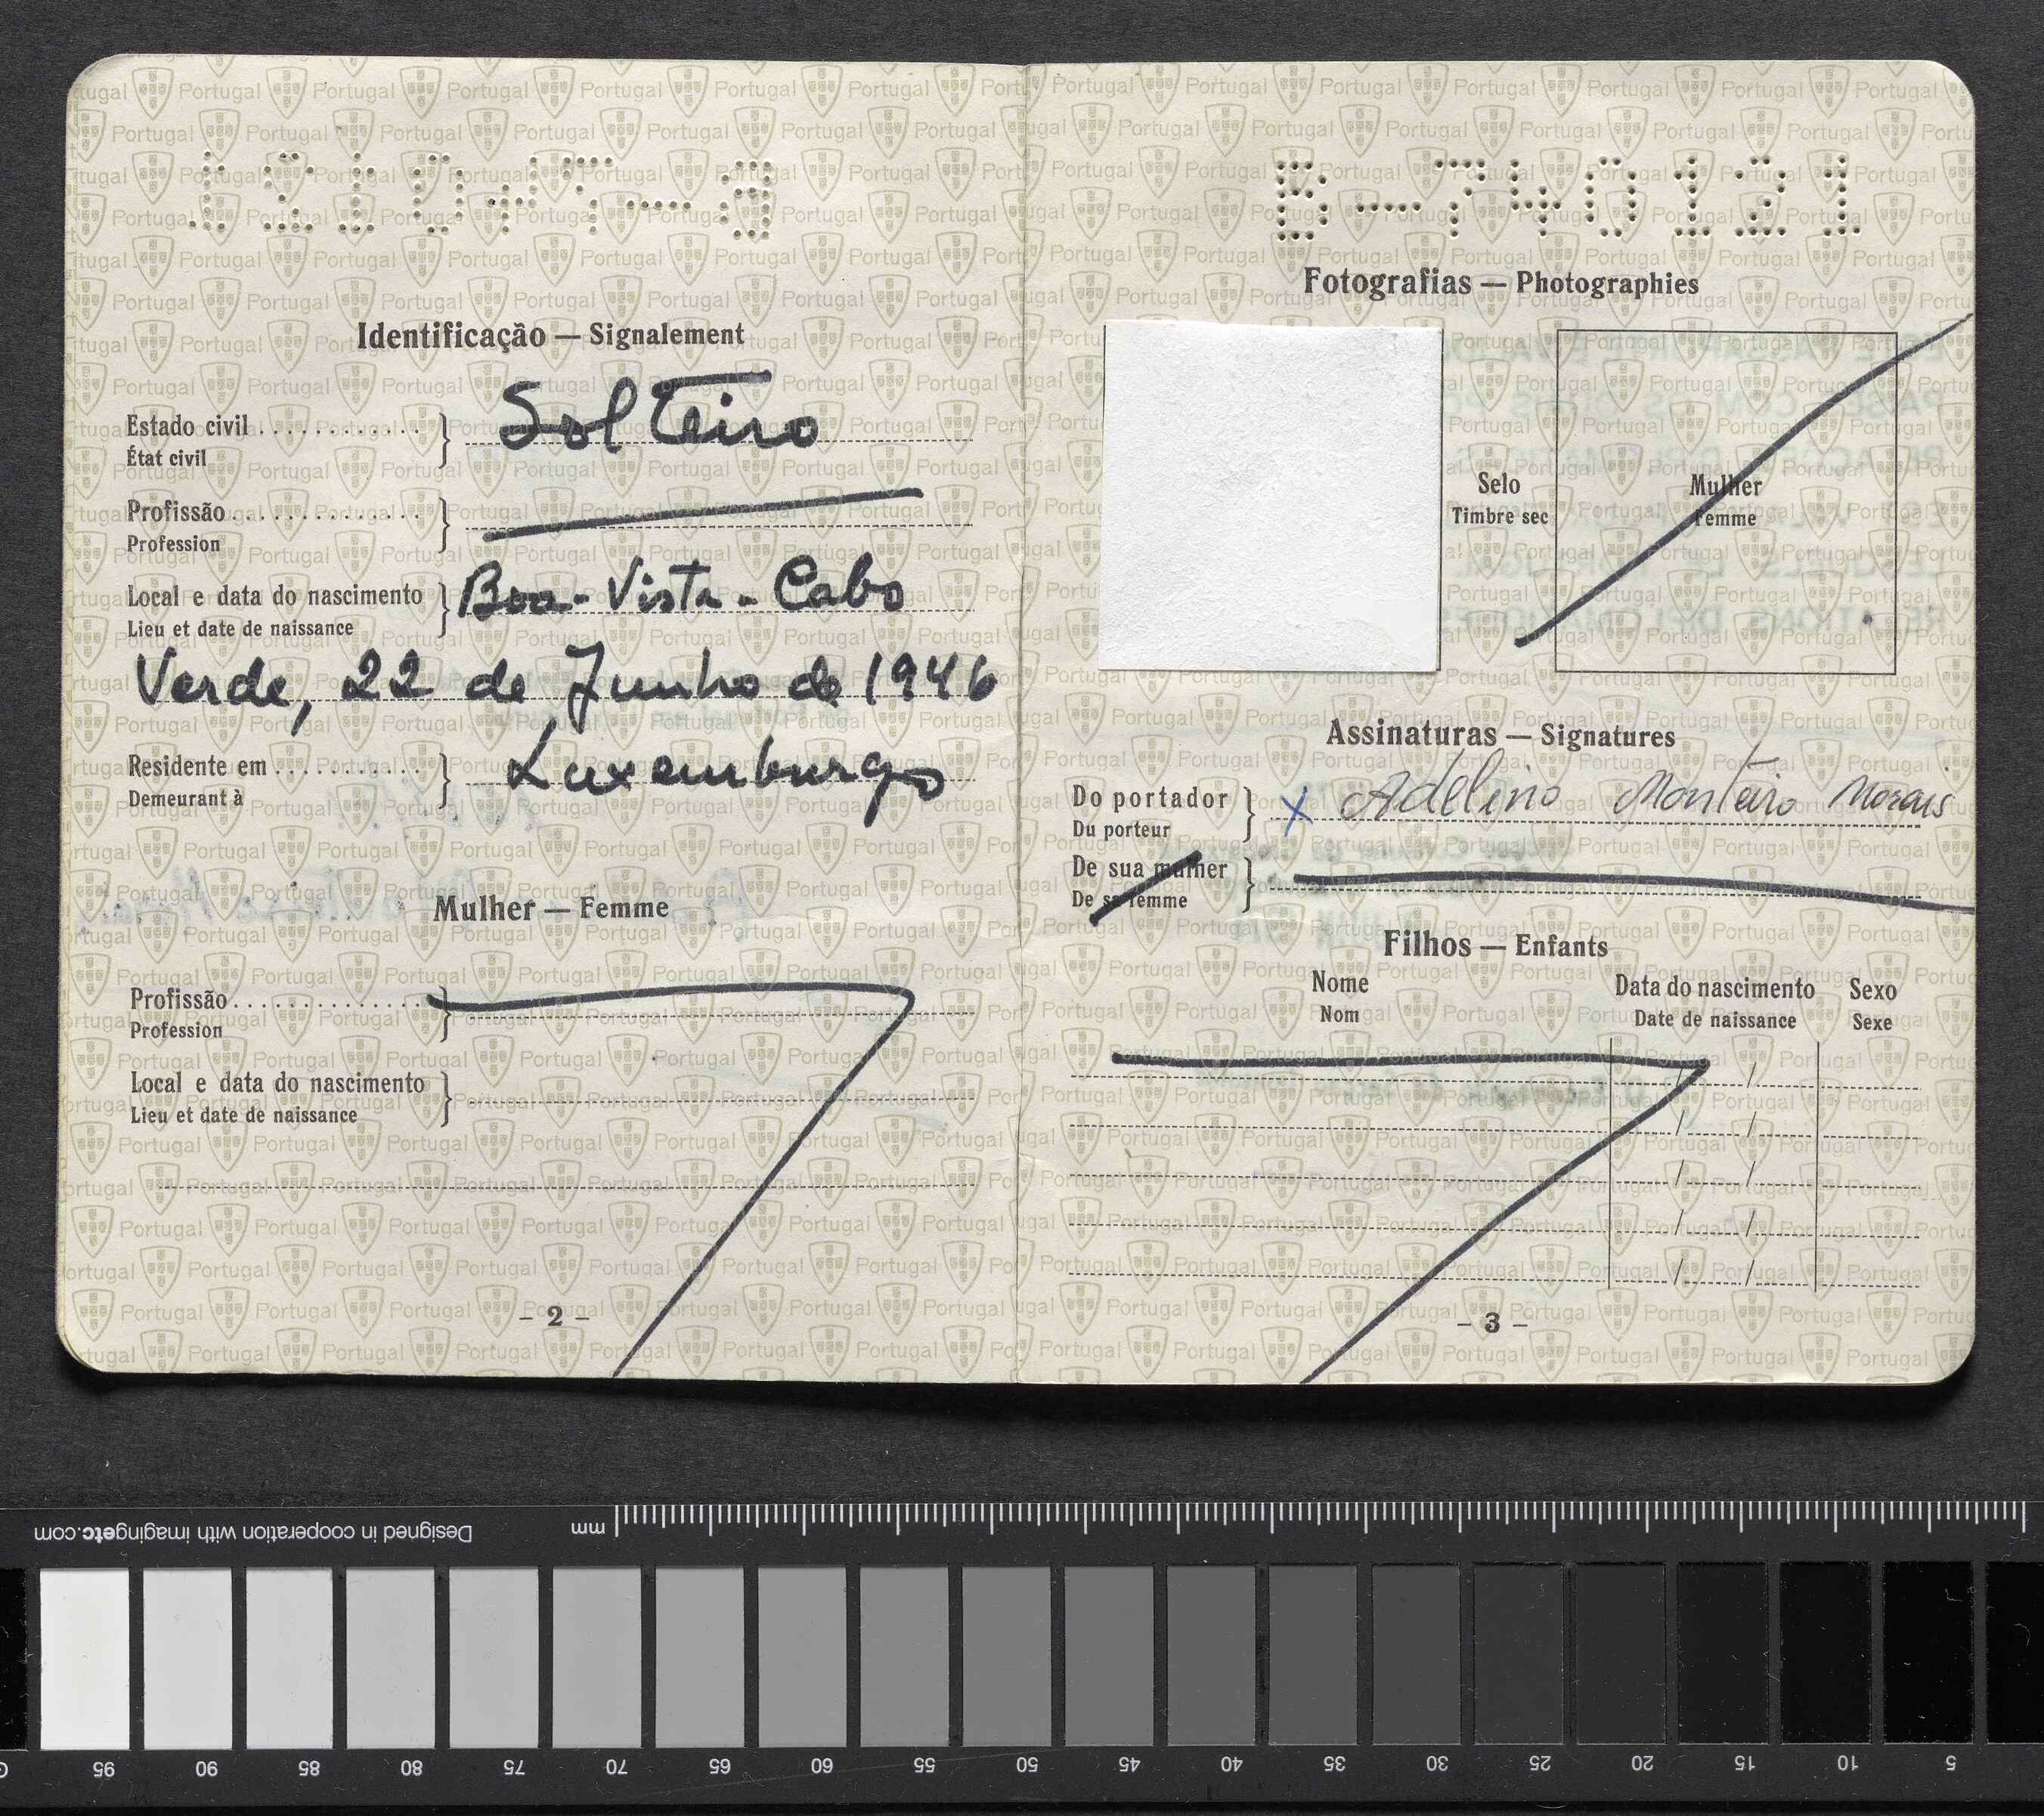 B-740121
Identificação — Signalement
Estado civil
État civil
Solteiro
Profissão
Profession
Local e data do nascimento
Lieu et date de naissance
Boa-Vista - Cabo
Verde, 22 de Junho de 1946
Residente em
Demeurant à
Luxemburgo
Mulher — Femme
Profissão
Profession
Local e data do nascimento
Lieu et date de naissance
- 2 -
B-740121
Fotografias — Photographies
Selo
Timbre sec
Mulher
Femme
Assinaturas — Signatures
Do portador
Du porteur
x Adelino Monteiro Morais
De sua mulher
De sa femme
Filhos — Enfants
Nome
Nom
Data do nascimento
Date de naissance
Sexo
Sexe
/ /
/ /
/ /
/ /
/ /
- 3 -
Designed in cooperation with imagingetc.com
mm
95 90 85 80 75 70 65 60 55 50 45 40 35 30 25 20 15 10 5
Portugal